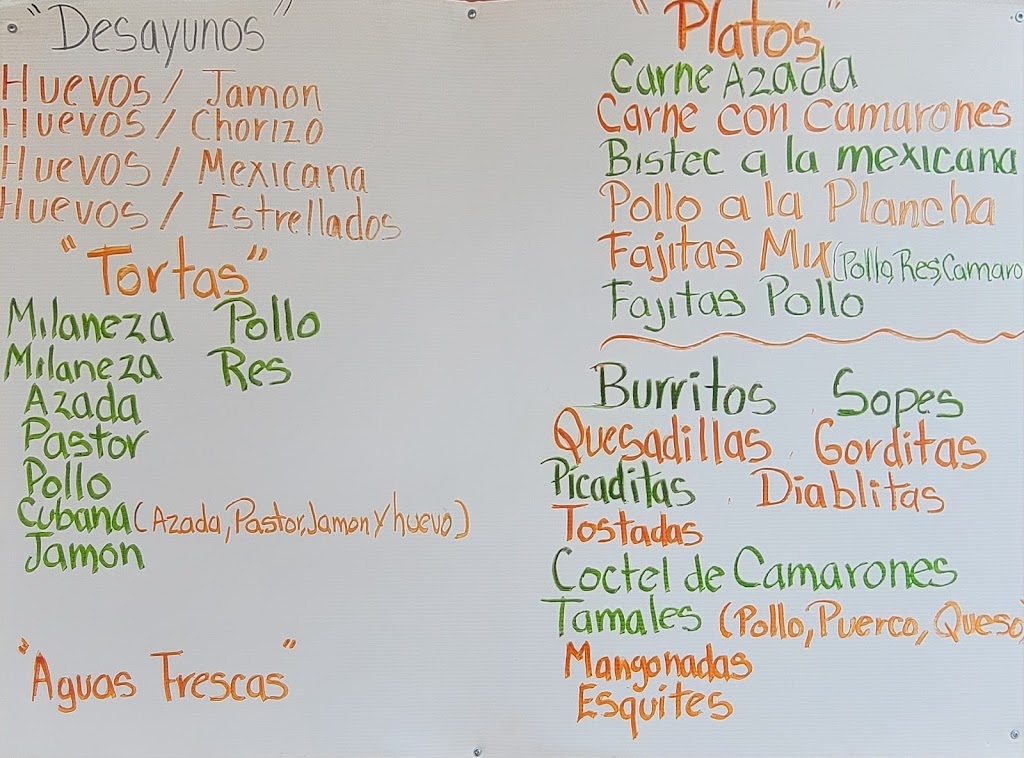 "Desayunos"
Huevos / Jamon
Huevos / Chorizo
Huevos / Mexicana
Huevos / Estrellados
"Tortas"
Milaneza Pollo
Milaneza Res
Azada
Pastor
Pollo
Cubana (Azada, Pastor, Jamon y huevo)
Jamon
"Aguas Frescas"
"Platos"
Carne Azada
Carne con Camarones
Bistec a la mexicana
Pollo a la Plancha
Fajitas Mix (Pollo, Res, Camaro
Fajitas Pollo
Burritos Sopes
Quesadillas Gorditas
Picaditas Diablitas
Tostadas
Coctel de Camarones
Tamales (Pollo, Puerco, Queso)
Mangonadas
Esquites